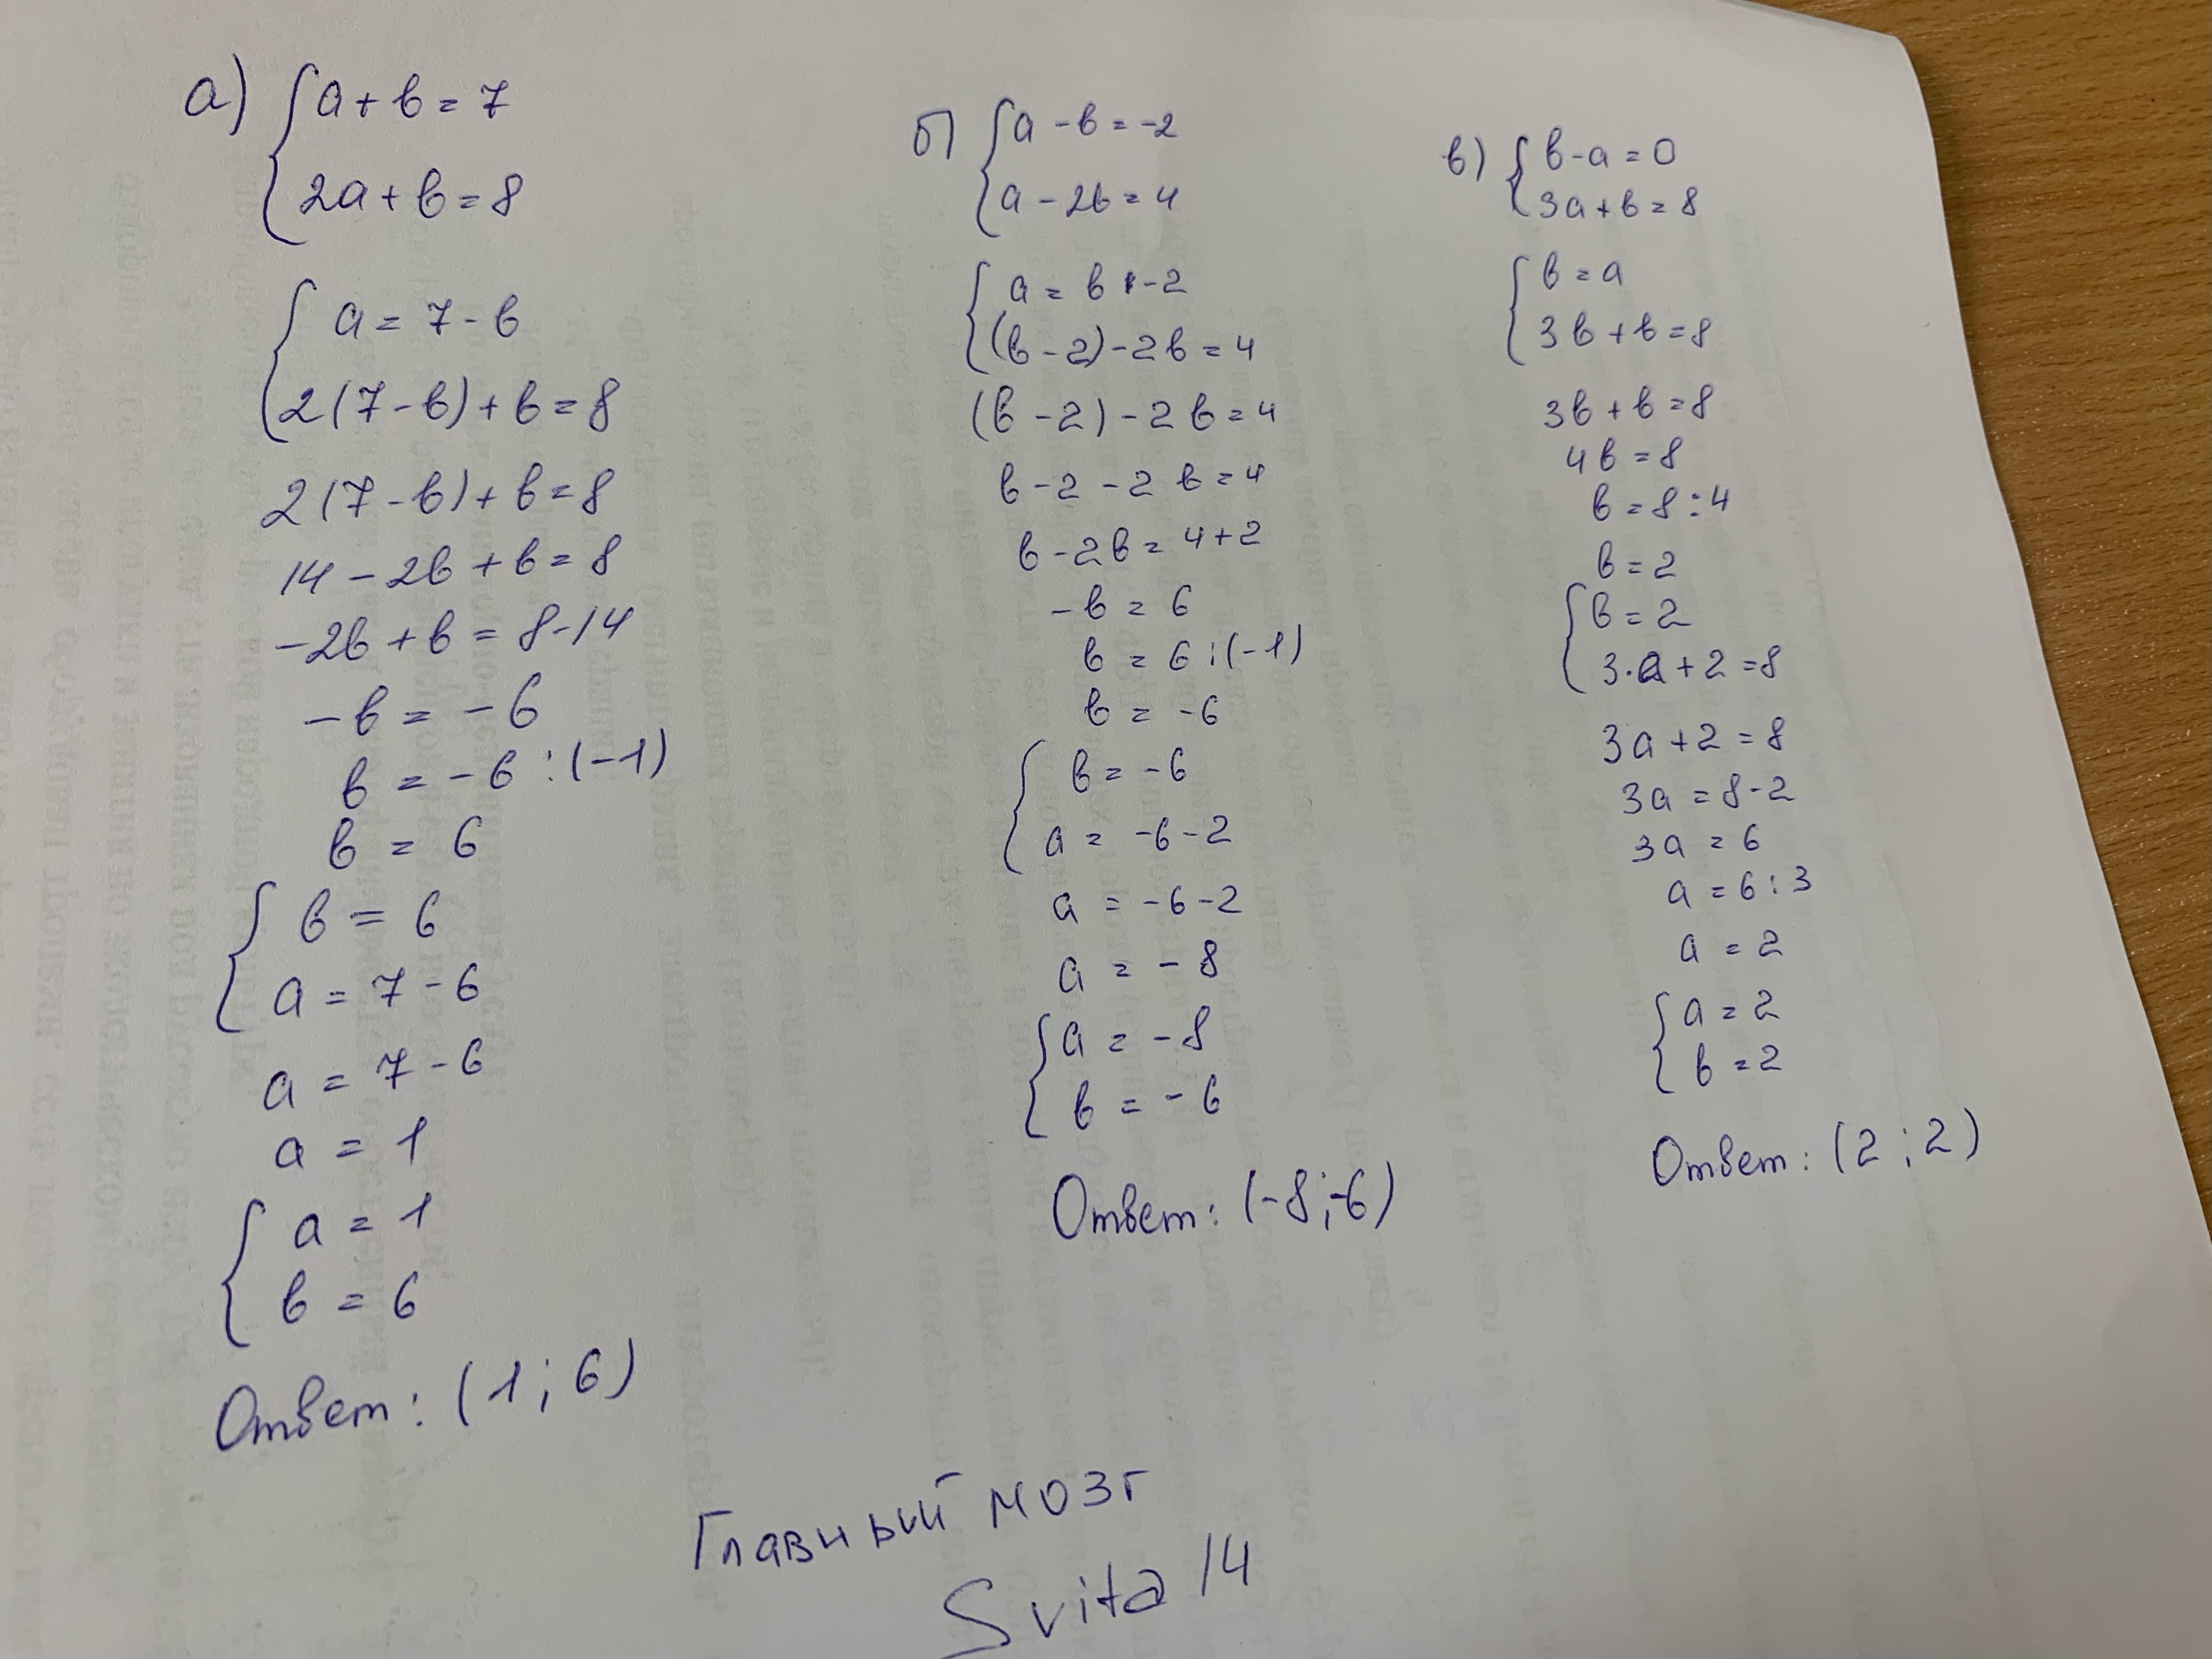 а) { a + b = 7
2a + b = 8
{ a = 7 - b
2(7 - b) + b = 8
2(7 - b) + b = 8
14 - 2b + b = 8
-2b + b = 8 - 14
-b = -6
b = -6 : (-1)
b = 6
{ b = 6
a = 7 - 6
a = 7 - 6
a = 1
{ a = 1
b = 6
Ответ: (1; 6)
б) { a - b = -2
a - 2b = 4
{ a = b - 2
(b - 2) - 2b = 4
(b - 2) - 2b = 4
b - 2 - 2b = 4
b - 2b = 4 + 2
-b = 6
b = 6 : (-1)
b = -6
{ b = -6
a = -6 - 2
a = -6 - 2
a = -8
{ a = -8
b = -6
Ответ: (-8; -6)
в) { b - a = 0
3a + b = 8
{ b = a
3b + b = 8
3b + b = 8
4b = 8
b = 8 : 4
b = 2
{ b = 2
3·a + 2 = 8
3a + 2 = 8
3a = 8 - 2
3a = 6
a = 6 : 3
a = 2
{ a = 2
b = 2
Ответ: (2; 2)
Главный мозг
Svita 14